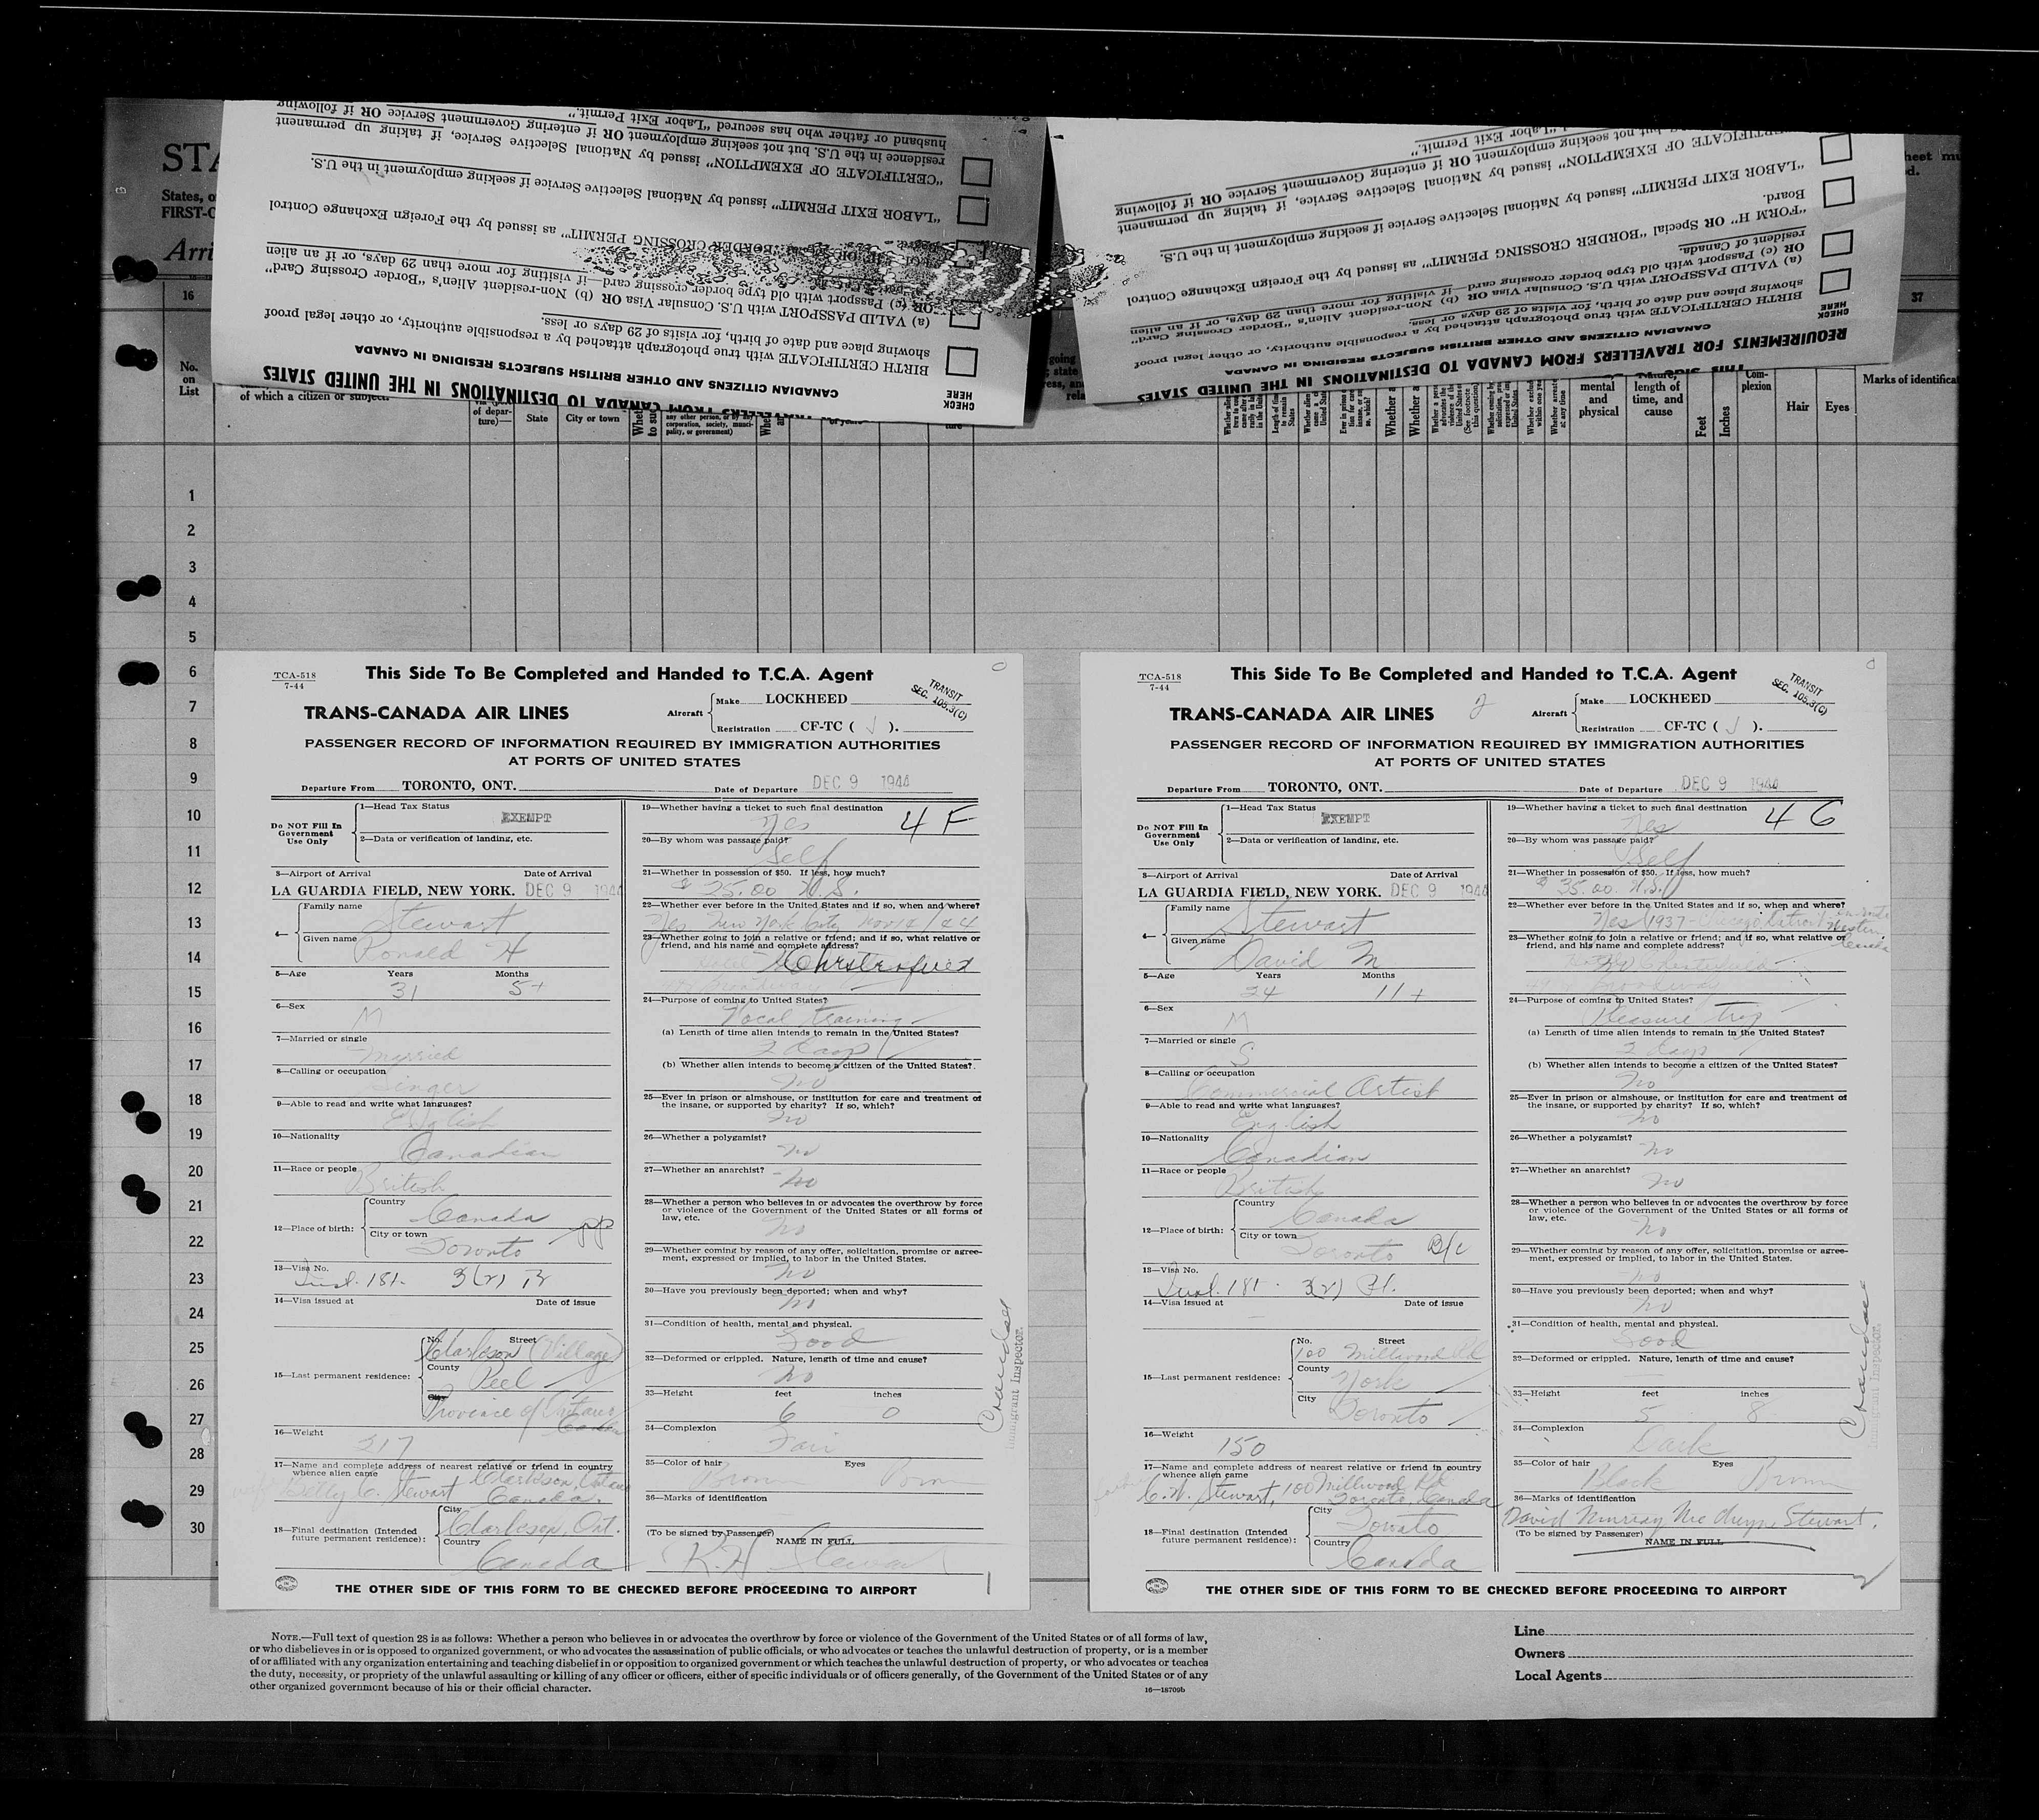 STA
States, o
FIRST-C
Arri
16
No.
on
List
of which a citizen or subject.
of depar-
ture)—
State
City or town
any other person, or by any
corporation, society, munici-
pality, or government)
mental
and
physical
length of
time, and
cause
Feet
Inches
Com-
plexion
Hair
Eyes
37
Marks of identificat
REQUIREMENTS FOR TRAVELLERS FROM CANADA TO DESTINATIONS IN THE UNITED STATES
CANADIAN CITIZENS AND OTHER BRITISH SUBJECTS RESIDING IN CANADA
CHECK
HERE
BIRTH CERTIFICATE with true photograph attached by a responsible authority, or other legal proof
showing place and date of birth, for visits of 29 days or less.
(a) VALID PASSPORT with U.S. Consular Visa OR (b) Non-resident Alien's "Border Crossing Card"
OR (c) Passport with old type border crossing card—if visiting for more than 29 days, or if an alien
resident of Canada.
"FORM H" OR Special "BORDER CROSSING PERMIT" as issued by the Foreign Exchange Control
Board.
"LABOR EXIT PERMIT" issued by National Selective Service if seeking employment in the U.S.
"CERTIFICATE OF EXEMPTION" issued by National Selective Service, if taking up permanent
residence in the U.S. but not seeking employment OR if entering Government Service OR if following
husband or father who has secured "Labor Exit Permit."
1
2
3
4
5
6
7
8
9
10
11
12
13
14
15
16
17
18
19
20
21
22
23
24
25
26
27
28
29
30
TCA-518
7-44
This Side To Be Completed and Handed to T.C.A. Agent
TRANSIT
SEC. 105.3(C)
TRANS-CANADA AIR LINES
Aircraft
Make LOCKHEED
Registration CF-TC ( J ).
PASSENGER RECORD OF INFORMATION REQUIRED BY IMMIGRATION AUTHORITIES
AT PORTS OF UNITED STATES
Departure From TORONTO, ONT. Date of Departure DEC 9 1944
Do NOT Fill In
Government
Use Only
1—Head Tax Status
EXEMPT
2—Data or verification of landing, etc.
3—Airport of Arrival Date of Arrival
LA GUARDIA FIELD, NEW YORK. DEC 9 1944
4—
Family name Stewart
Given name Ronald H
5—Age Years Months
31 5+
6—Sex
M
7—Married or single
Married
8—Calling or occupation
Singer
9—Able to read and write what languages?
English
10—Nationality
Canadian
11—Race or people
British
12—Place of birth:
Country
Canada
City or town
Toronto
PP
13—Visa No.
181. 3(2)
14—Visa issued at Date of issue
15—Last permanent residence:
No. Street
Clarkson (Village)
County
Peel
City
Province of Ontario
16—Weight
217
17—Name and complete address of nearest relative or friend in country
whence alien came
wife Betty C. Stewart Clarkson, Ontario
Canada.
18—Final destination (Intended
future permanent residence):
City
Clarkson, Ont.
Country
Canada
19—Whether having a ticket to such final destination
Yes 4 F
20—By whom was passage paid?
Self
21—Whether in possession of $50. If less, how much?
$ 25.00 U.S.
22—Whether ever before in the United States and if so, when and where?
Yes New York City Nov 14/44
23—Whether going to join a relative or friend; and if so, what relative or
friend, and his name and complete address?
Broadway
24—Purpose of coming to United States?
Vocal training
(a) Length of time alien intends to remain in the United States?
2 days
(b) Whether alien intends to become a citizen of the United States?
No
25—Ever in prison or almshouse, or institution for care and treatment of
the insane, or supported by charity? If so, which?
No
26—Whether a polygamist?
No
27—Whether an anarchist?
No
28—Whether a person who believes in or advocates the overthrow by force
or violence of the Government of the United States or all forms of
law, etc.
No
29—Whether coming by reason of any offer, solicitation, promise or agree-
ment, expressed or implied, to labor in the United States.
No
30—Have you previously been deported; when and why?
No
31—Condition of health, mental and physical.
Good
32—Deformed or crippled. Nature, length of time and cause?
No
33—Height feet inches
6 0
34—Complexion
Fair
35—Color of hair Eyes
Brown Brn
36—Marks of identification
(To be signed by Passenger)
NAME IN FULL
R.H Stewart
Immigrant Inspector.
THE OTHER SIDE OF THIS FORM TO BE CHECKED BEFORE PROCEEDING TO AIRPORT
1
TCA-518
7-44
This Side To Be Completed and Handed to T.C.A. Agent
TRANSIT
SEC. 105.3(C)
TRANS-CANADA AIR LINES 2
Aircraft
Make LOCKHEED
Registration CF-TC ( J ).
PASSENGER RECORD OF INFORMATION REQUIRED BY IMMIGRATION AUTHORITIES
AT PORTS OF UNITED STATES
Departure From TORONTO, ONT. Date of Departure DEC 9 1944
Do NOT Fill In
Government
Use Only
1—Head Tax Status
EXEMPT
2—Data or verification of landing, etc.
3—Airport of Arrival Date of Arrival
LA GUARDIA FIELD, NEW YORK. DEC 9 1944
4—
Family name Stewart
Given name David M
5—Age Years Months
24 11+
6—Sex
M
7—Married or single
S
8—Calling or occupation
Commercial Artist
9—Able to read and write what languages?
English
10—Nationality
Canadian
11—Race or people
British
12—Place of birth:
Country
Canada
City or town
Toronto
B/C
13—Visa No.
181. 3(2)
14—Visa issued at Date of issue
15—Last permanent residence:
No. Street
100 Millwood Rd
County
York
City
Toronto
16—Weight
150
17—Name and complete address of nearest relative or friend in country
whence alien came
Stewart, 100 Millwood Rd
Toronto, Canada
18—Final destination (Intended
future permanent residence):
City
Toronto
Country
Canada
19—Whether having a ticket to such final destination
Yes 4 G
20—By whom was passage paid?
Self
21—Whether in possession of $50. If less, how much?
$ 35.00 U.S.
22—Whether ever before in the United States and if so, when and where?
Yes 1937 - Chicago, Detroit en route
Western
Canada
23—Whether going to join a relative or friend; and if so, what relative or
friend, and his name and complete address?
Broadway
24—Purpose of coming to United States?
Pleasure trip
(a) Length of time alien intends to remain in the United States?
2 days
(b) Whether alien intends to become a citizen of the United States?
No
25—Ever in prison or almshouse, or institution for care and treatment of
the insane, or supported by charity? If so, which?
No
26—Whether a polygamist?
No
27—Whether an anarchist?
No
28—Whether a person who believes in or advocates the overthrow by force
or violence of the Government of the United States or all forms of
law, etc.
No
29—Whether coming by reason of any offer, solicitation, promise or agree-
ment, expressed or implied, to labor in the United States.
No
30—Have you previously been deported; when and why?
No
31—Condition of health, mental and physical.
Good
32—Deformed or crippled. Nature, length of time and cause?
33—Height feet inches
5 8
34—Complexion
Dark
35—Color of hair Eyes
Black Brown
36—Marks of identification
David Murray Mc Stewart.
(To be signed by Passenger)
NAME IN FULL
Immigrant Inspector.
THE OTHER SIDE OF THIS FORM TO BE CHECKED BEFORE PROCEEDING TO AIRPORT
2
NOTE.—Full text of question 28 is as follows: Whether a person who believes in or advocates the overthrow by force or violence of the Government of the United States or of all forms of law,
or who disbelieves in or is opposed to organized government, or who advocates the assassination of public officials, or who advocates or teaches the unlawful destruction of property, or is a member
of or affiliated with any organization entertaining and teaching disbelief in or opposition to organized government or which teaches the unlawful destruction of property, or who advocates or teaches
the duty, necessity, or propriety of the unlawful assaulting or killing of any officer or officers, either of specific individuals or of officers generally, of the Government of the United States or of any
other organized government because of his or their official character.
16—18709b
Line
Owners
Local Agents